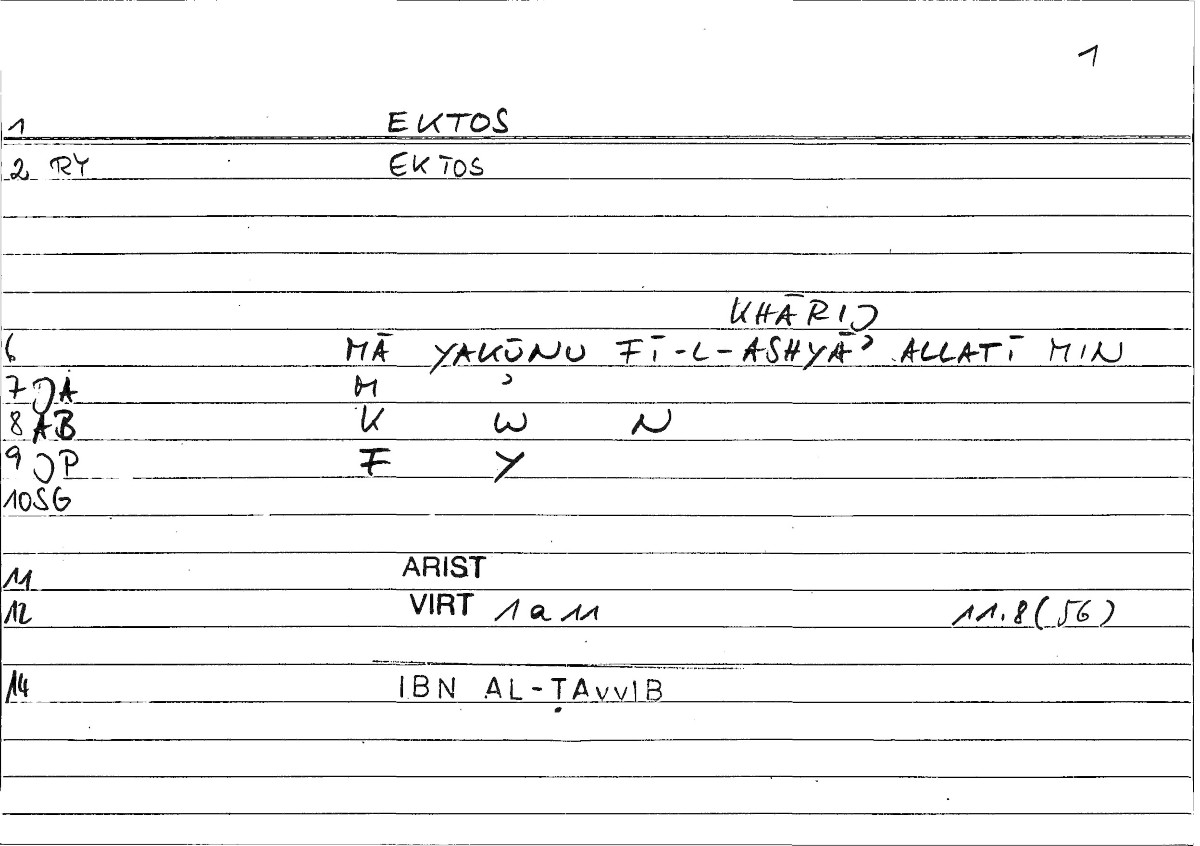 1
1 EKTOS
2 RY EKTOS
KHĀRIJ
6 MĀ YAKŪNU FĪ-L-ASHYĀʾ ALLATĪ MIN
7 JA M ʾ
8 AB K W N
9 JP F Y
10 SG
11 ARIST
12 VIRT 1 a 11 11.8 (56)
14 IBN AL-ṬAYYIB